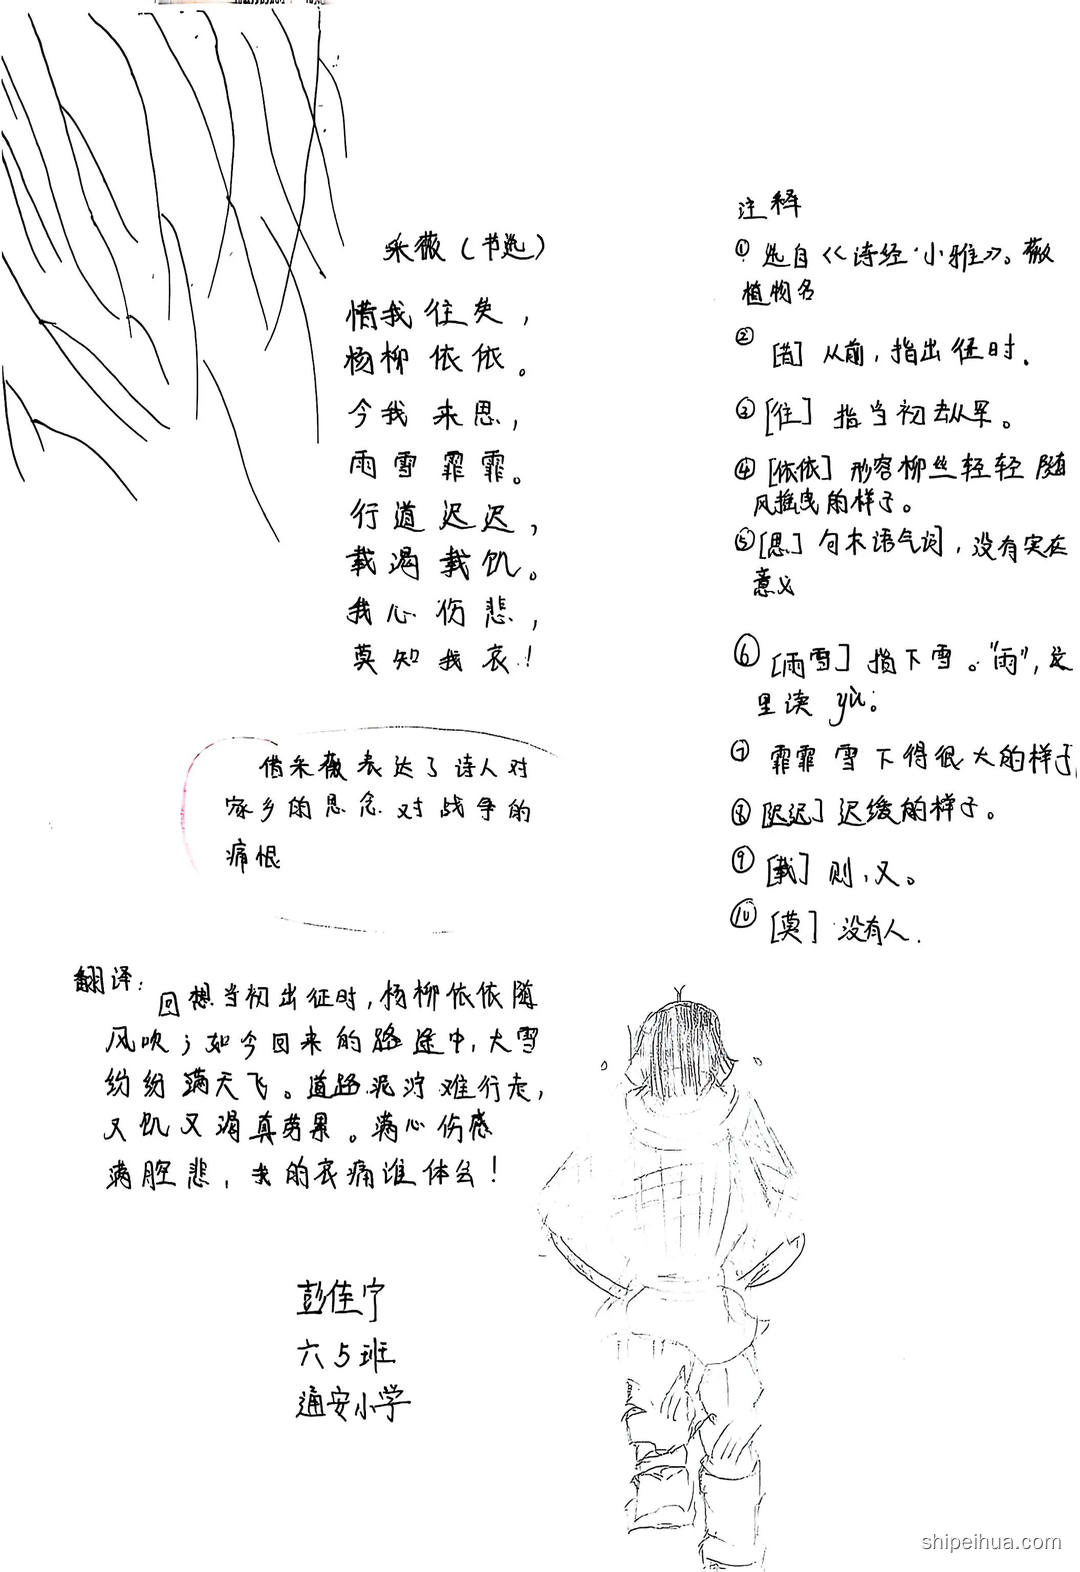 采薇（节选）
惜我往矣，
杨柳依依。
今我来思，
雨雪霏霏。
行道迟迟，
载渴载饥。
我心伤悲，
莫知我哀！
借采薇表达了诗人对
家乡的思念对战争的
痛恨
翻译：
回想当初出征时，杨柳依依随
风吹；如今回来的路途中，大雪
纷纷满天飞。道路泥泞难行走，
又饥又渴真劳累。满心伤感
满腔悲，我的哀痛谁体会！
彭佳宁
六5班
通安小学
注释
① 选自《诗经·小雅》。薇
植物名
② [昔] 从前，指出征时．
③ [往] 指当初去从军。
④ [依依] 形容柳丝轻轻随
风摇曳的样子。
⑤ [思] 句末语气词，没有实在
意义
⑥ [雨雪] 指下雪。“雨”，这
里读 yù。
⑦ 霏霏 雪下得很大的样子
⑧ [迟迟] 迟缓的样子。
⑨ [载] 则，又。
⑩ [莫] 没有人．
shipeihua.com